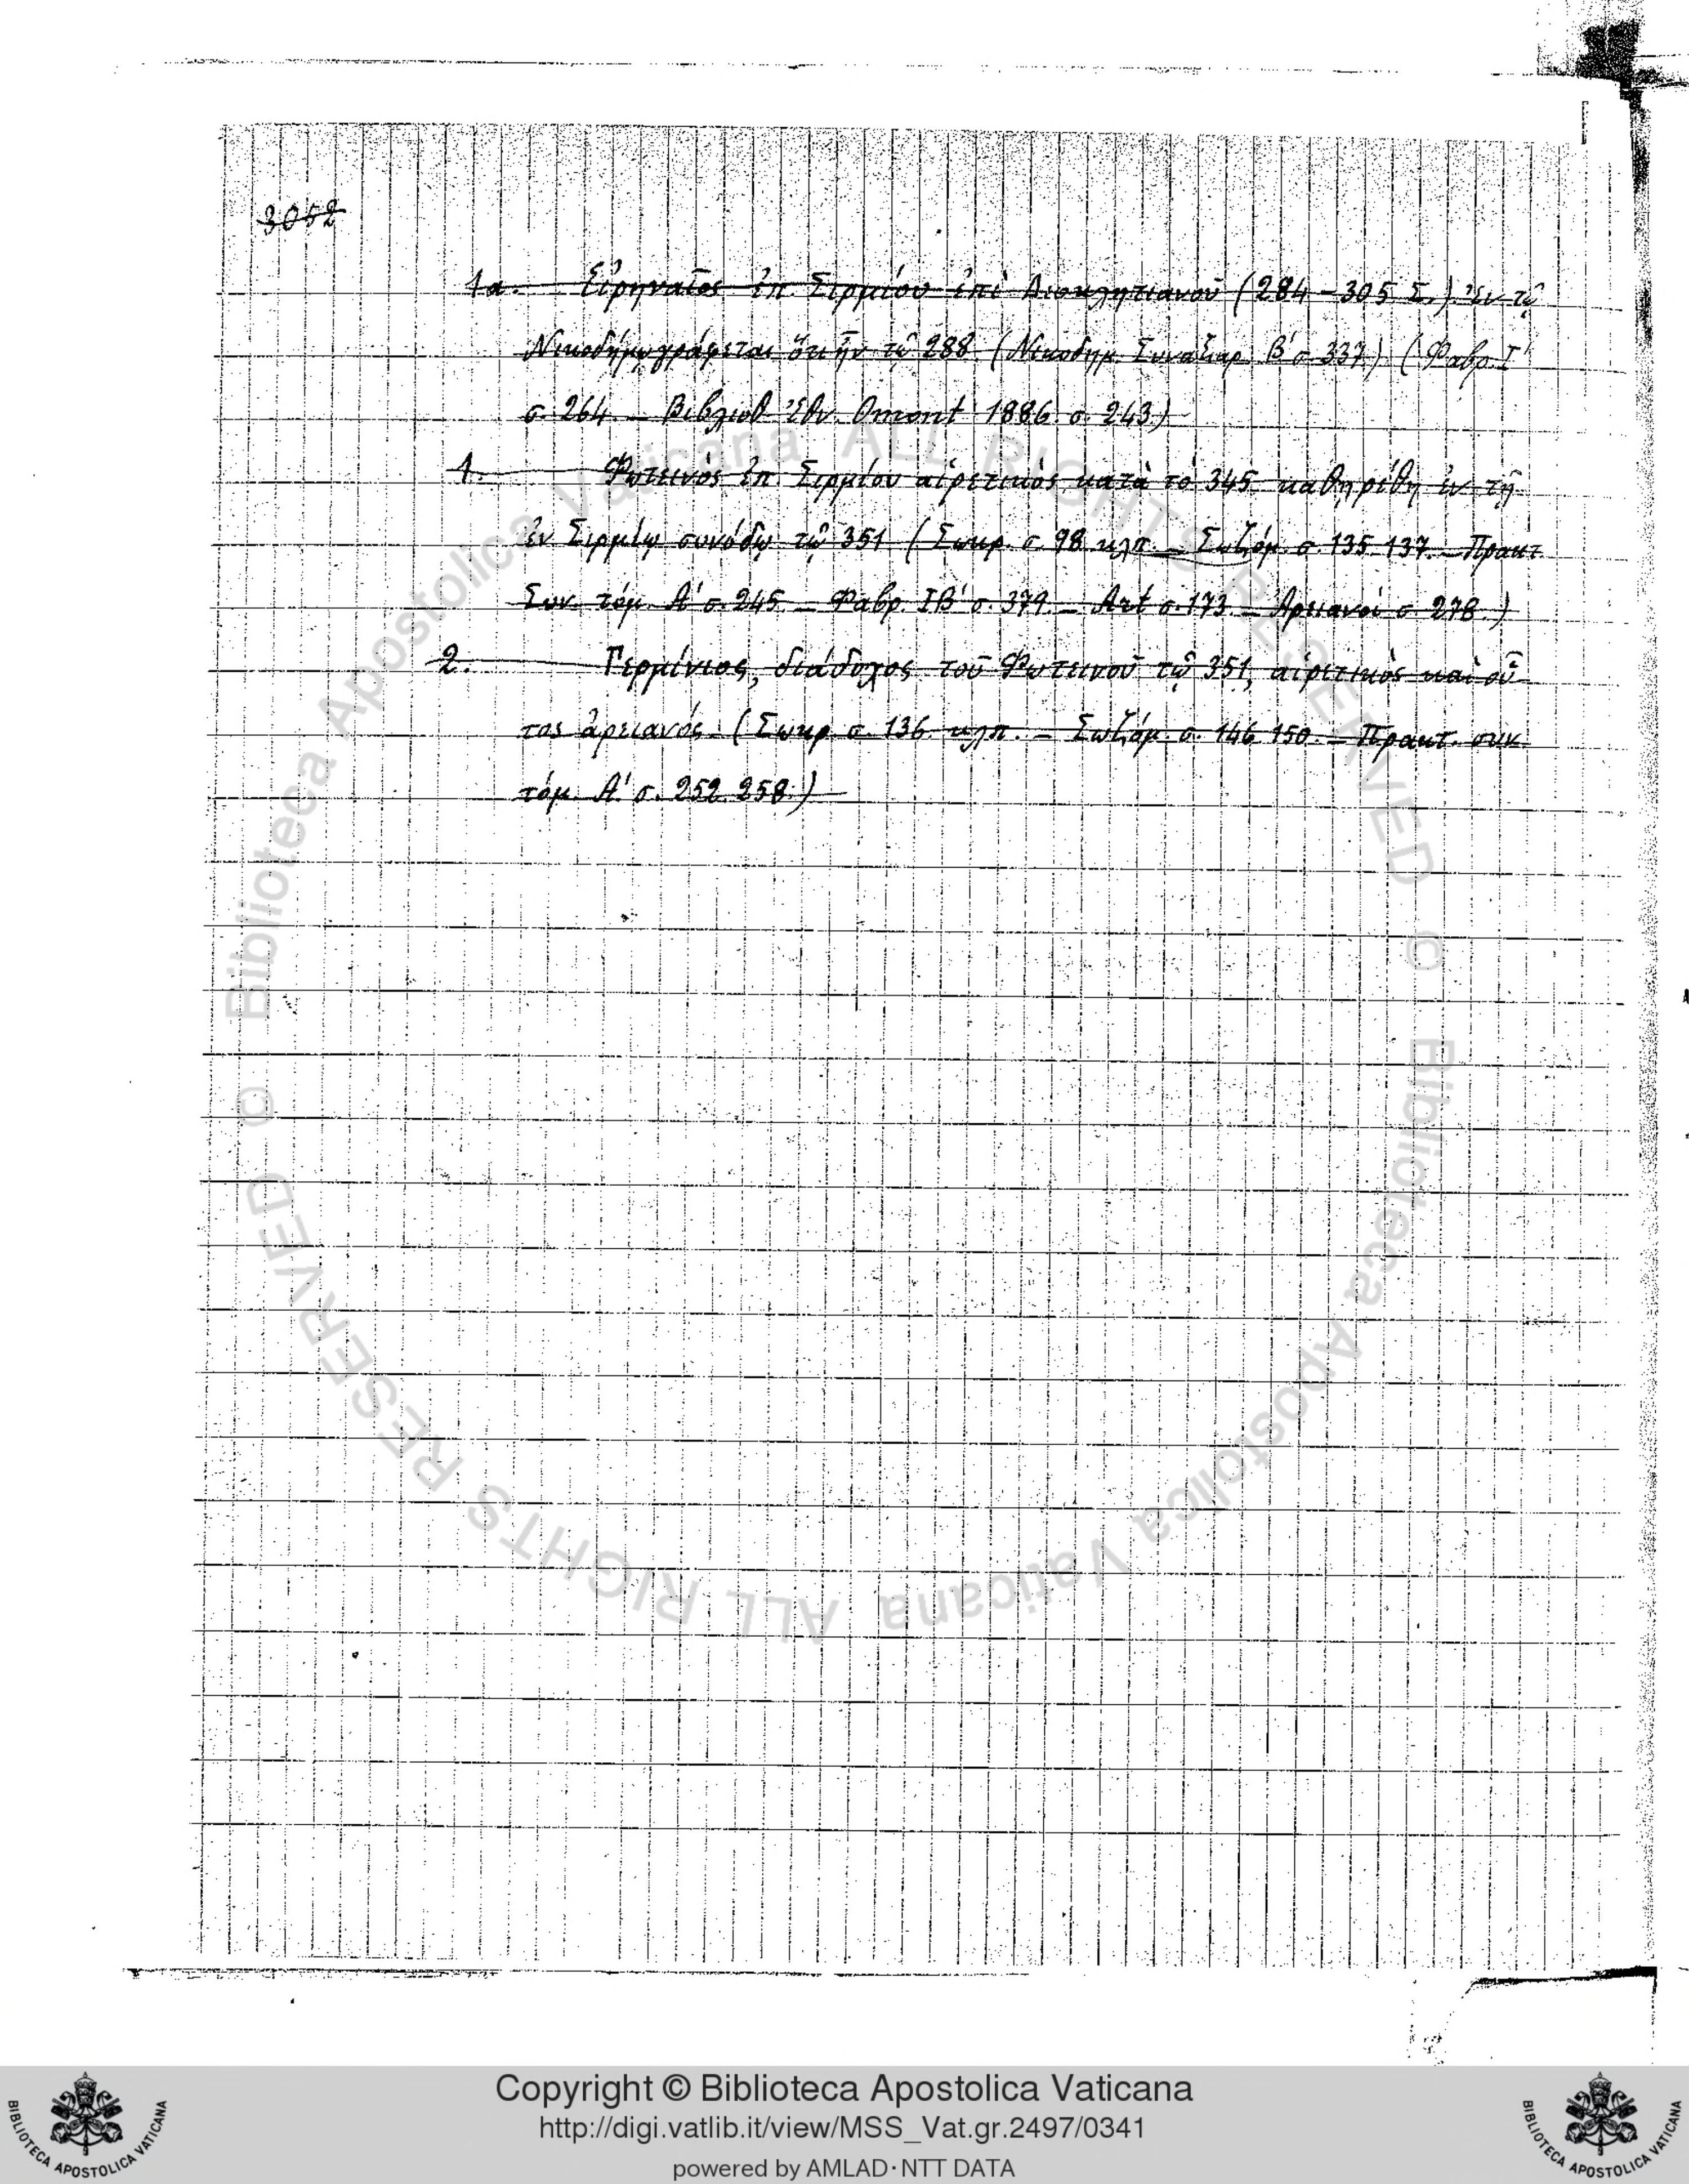 3052
1α. Εἰρηναῖος ἐπ. Σιρμίου ἐπὶ Διοκλητιανοῦ (284-305 Σ.). Ἐν τῷ
Νικοδήμῳ γράφεται ὅτι ἦν τῷ 288. (Νικοδημ. Συναξαρ. Β' σ. 337.) (Φαβρ. Ι'
σ. 264. – Βιβλιοθ. Ἐθν. Omont 1886. σ. 243.)
1. Φωτεινὸς ἐπ. Σιρμίου αἱρετικὸς κατὰ τὸ 345 καθῃρέθη ἐν τῇ
ἐν Σιρμίῳ συνόδῳ τῷ 351 (Σωκρ. σ. 98 κλπ. – Σωζόμ. σ. 135. 137. – Πρακτ.
Συν. τόμ. Α' σ. 245. – Φαβρ. ΙΒ' σ. 379. – Art σ. 173 – Ἀρειανοί σ. 278.)
2. Γερμίνιος, διάδοχος τοῦ Φωτεινοῦ τῷ 351, αἱρετικὸς καὶ οὗ
τος ἀρειανός. (Σωκρ. σ. 136. κλπ. – Σωζόμ. σ. 146. 150. – Πρακτ. συν.
τόμ. Α' σ. 252. 258.)
© Biblioteca Apostolica Vaticana ALL RIGHTS RESERVED
© Biblioteca Apostolica Vaticana ALL RIGHTS RESERVED
Copyright © Biblioteca Apostolica Vaticana
http://digi.vatlib.it/view/MSS_Vat.gr.2497/0341
powered by AMLAD·NTT DATA
BIBLIOTECA APOSTOLICA VATICANA
BIBLIOTECA APOSTOLICA VATICANA